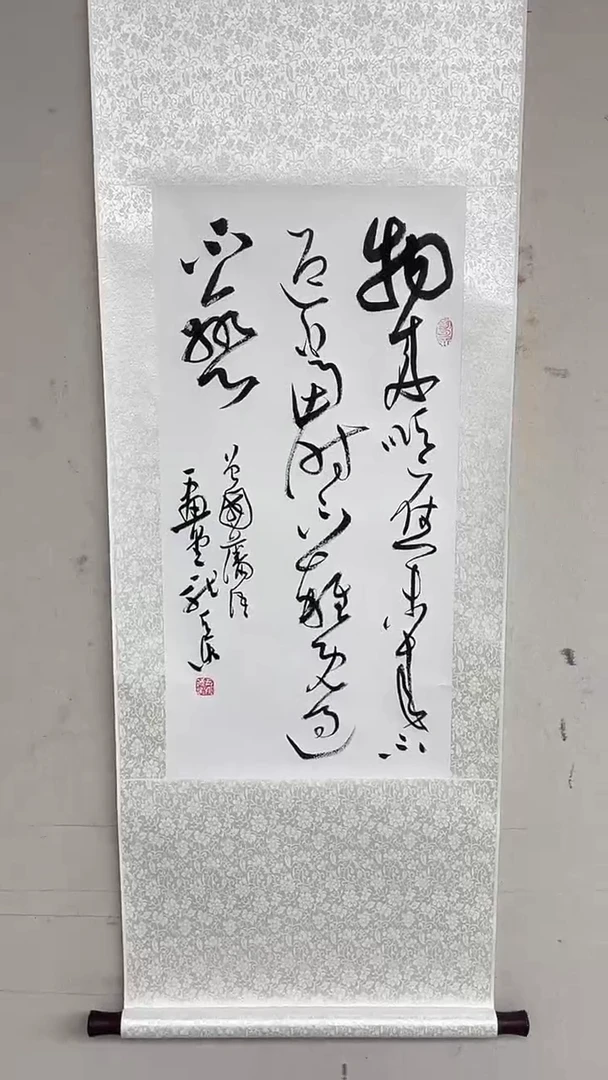 物來順應未來不
迎當時不雜既過
不戀
曾國藩語